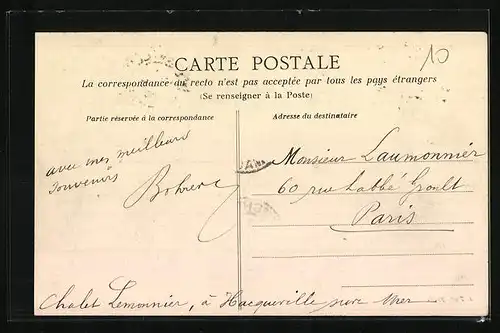 10
CARTE POSTALE
La correspondance au recto n'est pas acceptée par tous les pays étrangers
(Se renseigner à la Poste)
Partie réservée à la correspondance
Adresse du destinataire
avec mes meilleurs
souvenirs
Monsieur Laumonnier
60 rue l'abbé Groult
Paris
Chalet Lemonnier, à Hacqueville